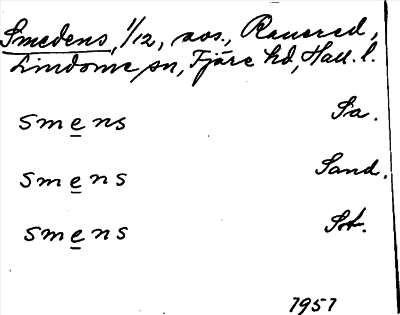 Smedens, 1/12, avs., Ranered,
Lindome sn, Fjäre hd, Hall. l.
smens Sa.
smens Sand.
smens St.
1951